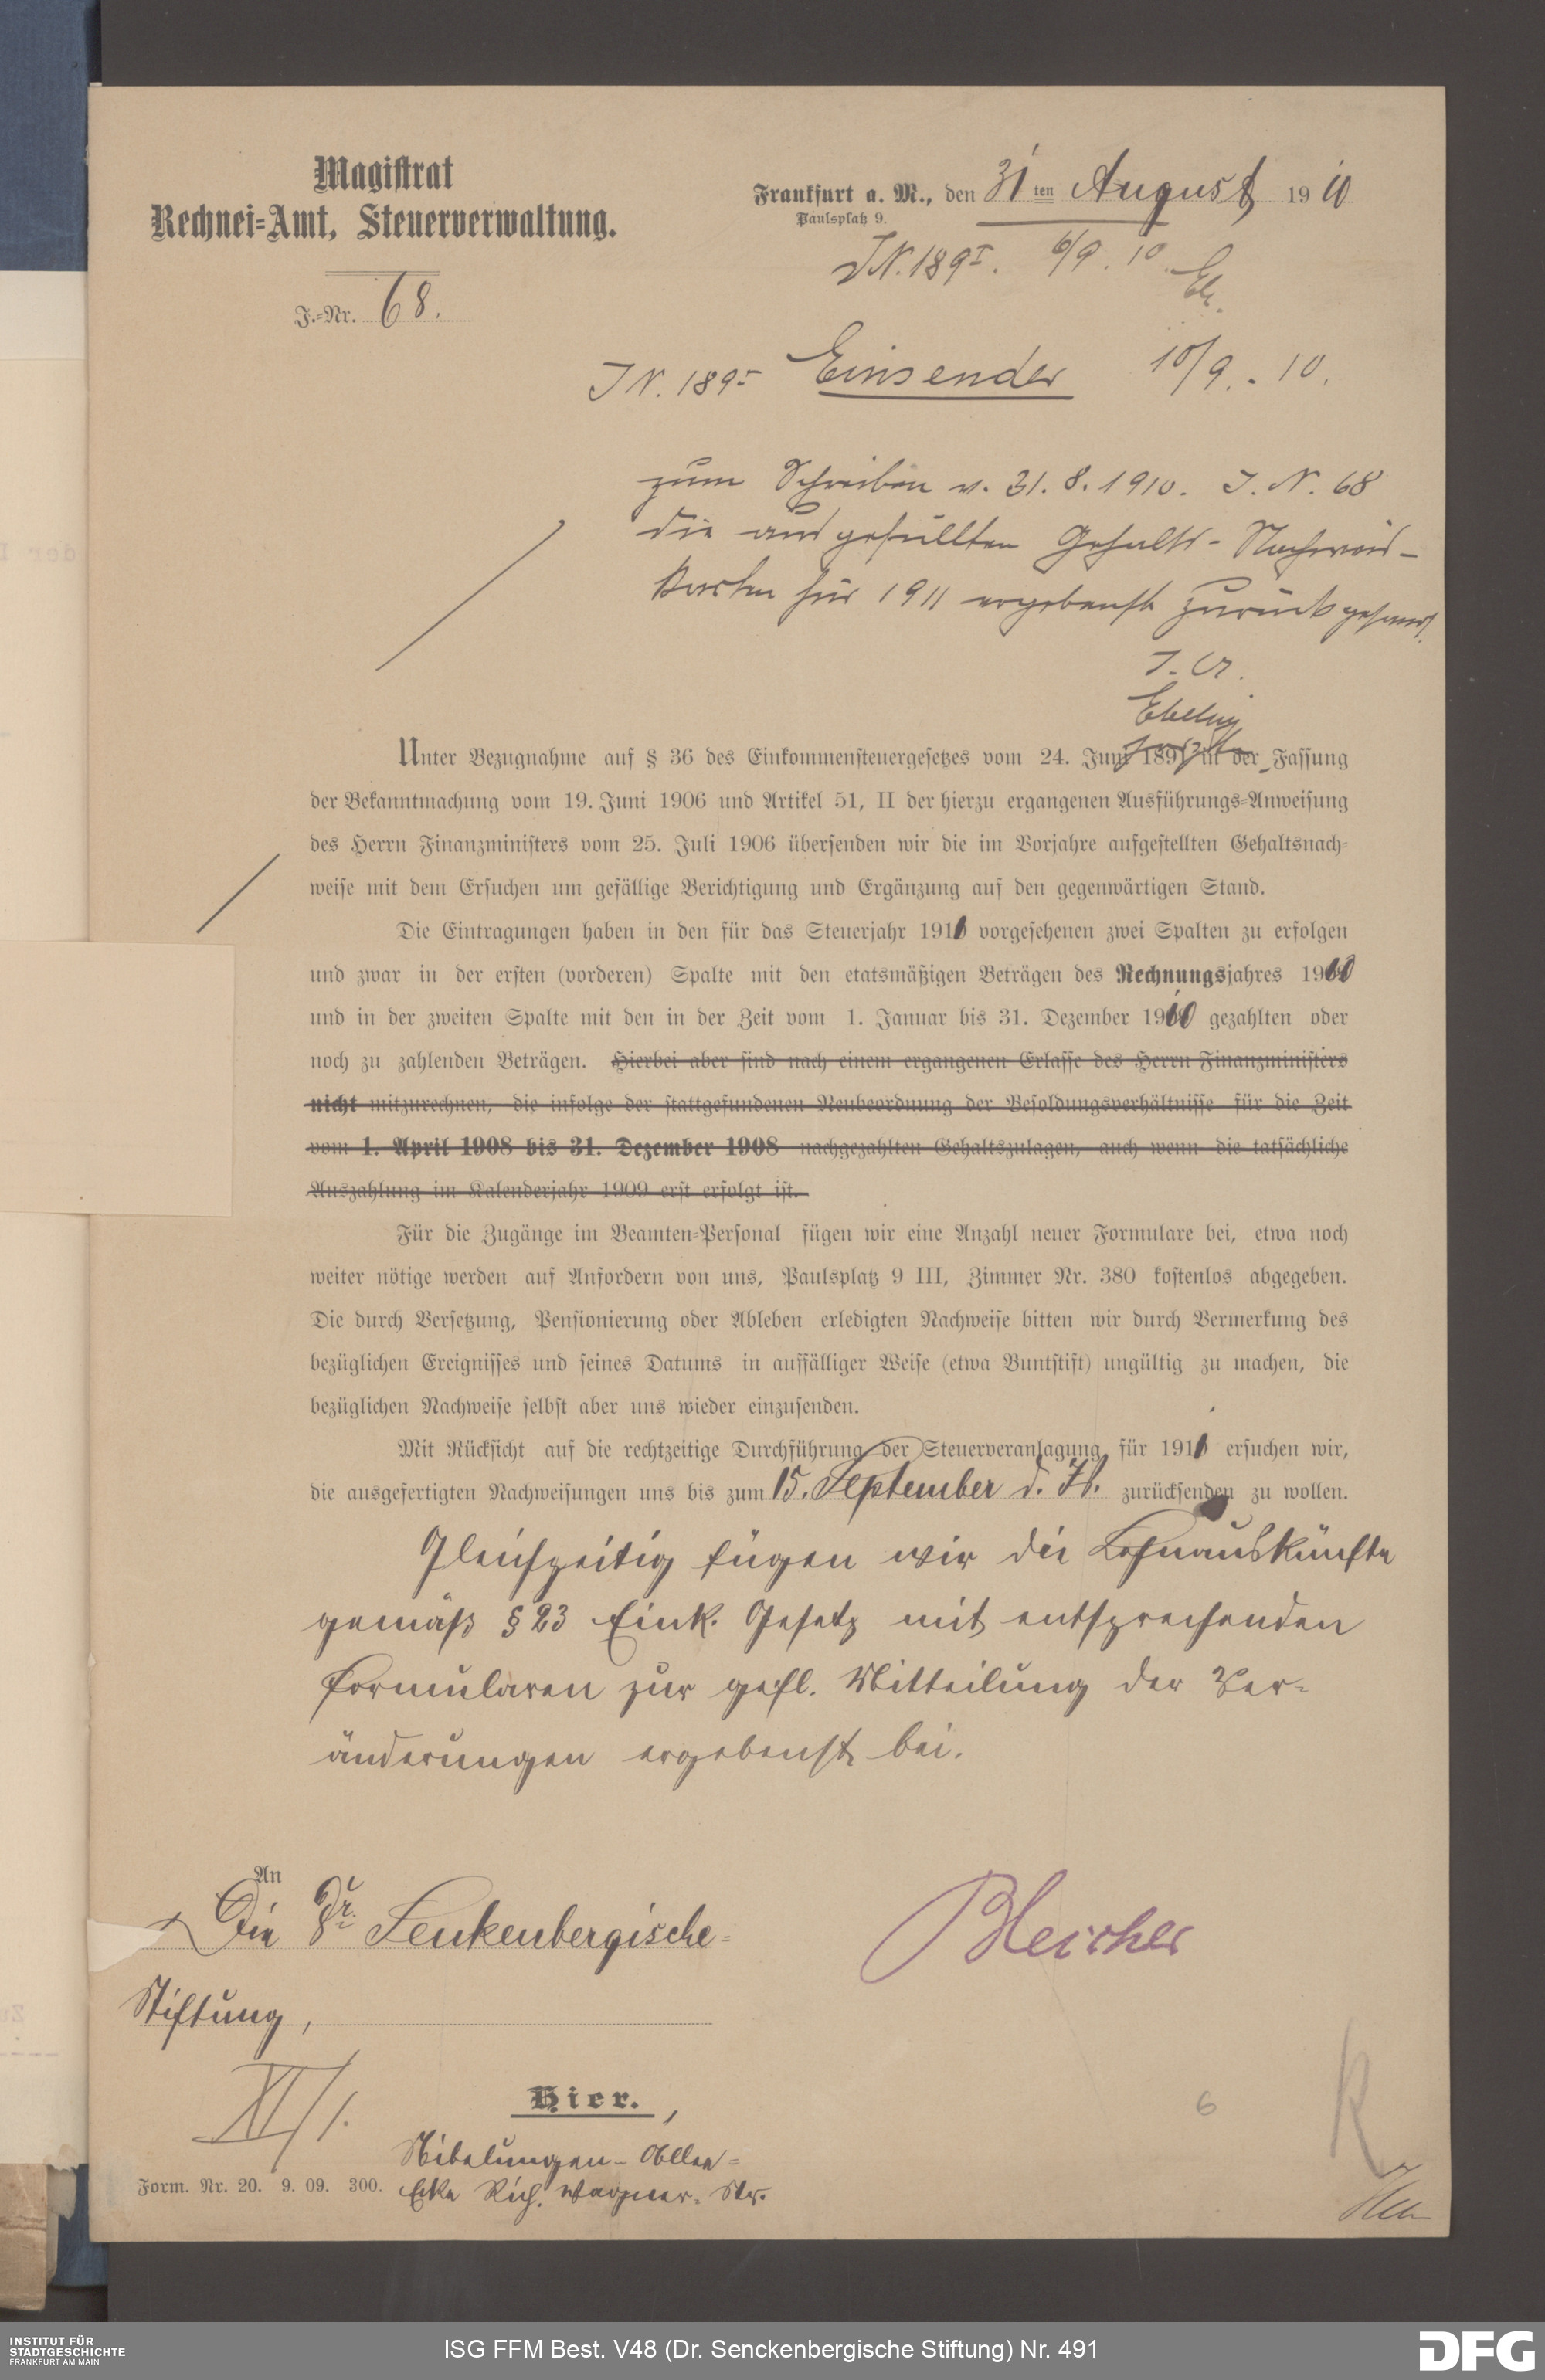 Magistrat
Rechnei-Amt, Steuerverwaltung.
J.-Nr. 68.
Frankfurt a. M., den 31 ten August 1910
Paulsplatz 9.
JN. 189I. 6/9. 10.
JN. 189I Einsender 10/9. 10.
zum Schreiben v. 31. 8. 1910. J. N. 68
die ausgefüllten Gehalts-Nachweis-
karten für 1911 ergebenst zurückgesandt.
Ebeling
Unter Bezugnahme auf § 36 des Einkommensteuergesetzes vom 24. Juni 1891 in der Fassung
der Bekanntmachung vom 19. Juni 1906 und Artikel 51, II der hierzu ergangenen Ausführungs-Anweisung
des Herrn Finanzministers vom 25. Juli 1906 übersenden wir die im Vorjahre aufgestellten Gehaltsnach-
weise mit dem Ersuchen um gefällige Berichtigung und Ergänzung auf den gegenwärtigen Stand.
Die Eintragungen haben in den für das Steuerjahr 1911 vorgesehenen zwei Spalten zu erfolgen
und zwar in der ersten (vorderen) Spalte mit den etatsmäßigen Beträgen des Rechnungsjahres 1910
und in der zweiten Spalte mit den in der Zeit vom 1. Januar bis 31. Dezember 1910 gezahlten oder
noch zu zahlenden Beträgen. Hierbei aber sind nach einem ergangenen Erlasse des Herrn Finanzministers
nicht mitzurechnen, die infolge der stattgefundenen Neubeordnung der Besoldungsverhältnisse für die Zeit
vom 1. April 1908 bis 31. Dezember 1908 nachgezahlten Gehaltszulagen, auch wenn die tatsächliche
Auszahlung im Kalenderjahr 1909 erst erfolgt ist.
Für die Zugänge im Beamten-Personal fügen wir eine Anzahl neuer Formulare bei, etwa noch
weiter nötige werden auf Anfordern von uns, Paulsplatz 9 III, Zimmer Nr. 380 kostenlos abgegeben.
Die durch Versetzung, Pensionierung oder Ableben erledigten Nachweise bitten wir durch Vermerkung des
bezüglichen Ereignisses und seines Datums in auffälliger Weise (etwa Buntstift) ungültig zu machen, die
bezüglichen Nachweise selbst aber uns wieder einzusenden.
Mit Rücksicht auf die rechtzeitige Durchführung der Steuerveranlagung für 1911 ersuchen wir,
die ausgefertigten Nachweisungen uns bis zum 15. September d. Js. zurücksenden zu wollen.
Gleichzeitig fügen wir die Lohnauskünfte
gemäß § 23 Eink. Gesetz mit entsprechenden
Formularen zur gefl. Mitteilung der Ver-
änderungen ergebenst bei.
An
Die Dr. Senkenbergische-
Stiftung,
Bleicher
XI/1.
Hier.,
Nibelungen-Allee-
Ecke Rich. Wagner-Str.
Form. Nr. 20. 9. 09. 300.
6
R
INSTITUT FÜR
STADTGESCHICHTE
FRANKFURT AM MAIN
ISG FFM Best. V48 (Dr. Senckenbergische Stiftung) Nr. 491
DFG